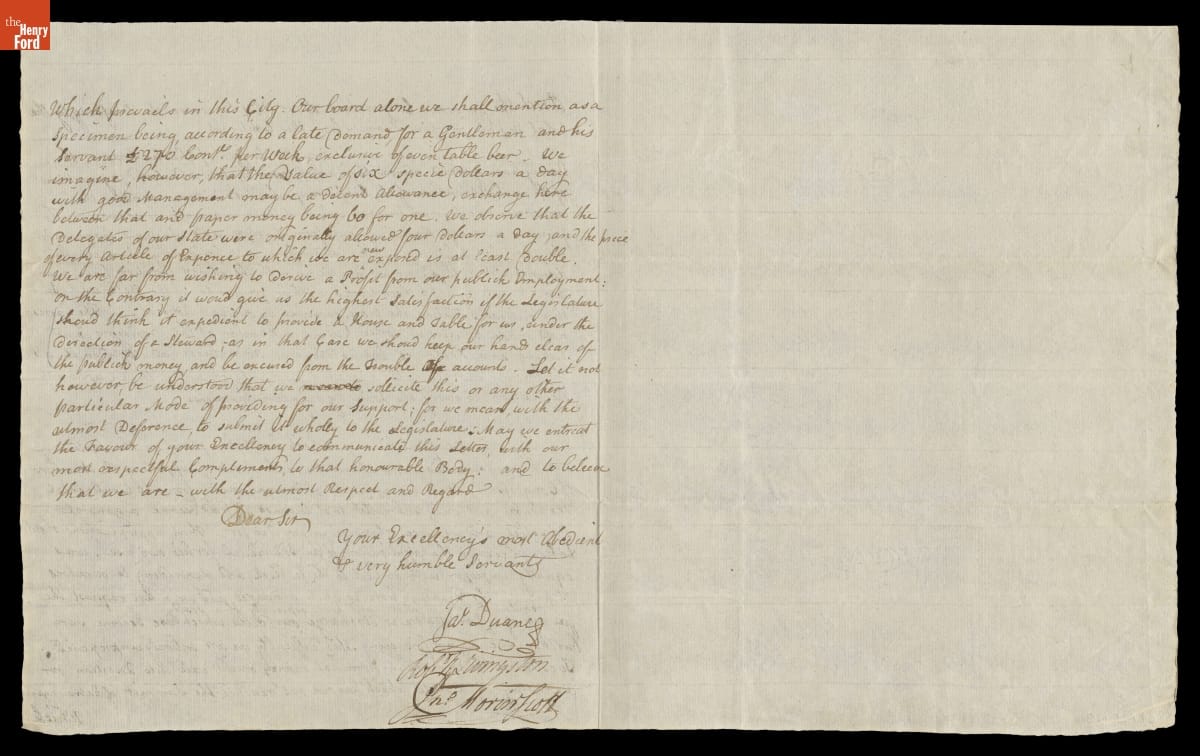 the
Henry
Ford
Which prevails in this City. Our board alone we shall mention as a
Specimen being, according to a late Demand, for a Gentleman and his
Servant £270 Cont.l per Week, exclusive of even table beer. We
imagine, however, that the Value of six specie Dollars a day
with good Management may be a decent Allowance, exchange here
between that and paper money being 60 for one. We observe that the
Delegates of our State were originally allowed four Dollars a Day, and the price
of every Article of Expence to which we are now exposed is at least Double.
We are far from wishing to Derive a Profit from our publick Employment:
on the Contrary it woud give us the highest Satisfaction if the Legislature
shoud think it expedient to provide a House and Table for us, under the
Direction of a Steward, as in that Case we shoud keep our hands clear of
the publick money, and be excused from the Trouble of accounts. Let it not
however, be understood that we sollicite this or any other
particular Mode of providing for our Support: for we mean, with the
utmost Deference, to submit it wholly to the Legislature: May we entreat
the Favour of your Excellency to communicate this Letter, with our
most respectful Compliments, to that honourable Body: and to beleeve
that we are - with the utmost Respect and Regard
Dear Sir
Your Excellency's most Obedient
& very humble Servants
Jas. Duane
Robt R Livingston
Jno. Morin Scott